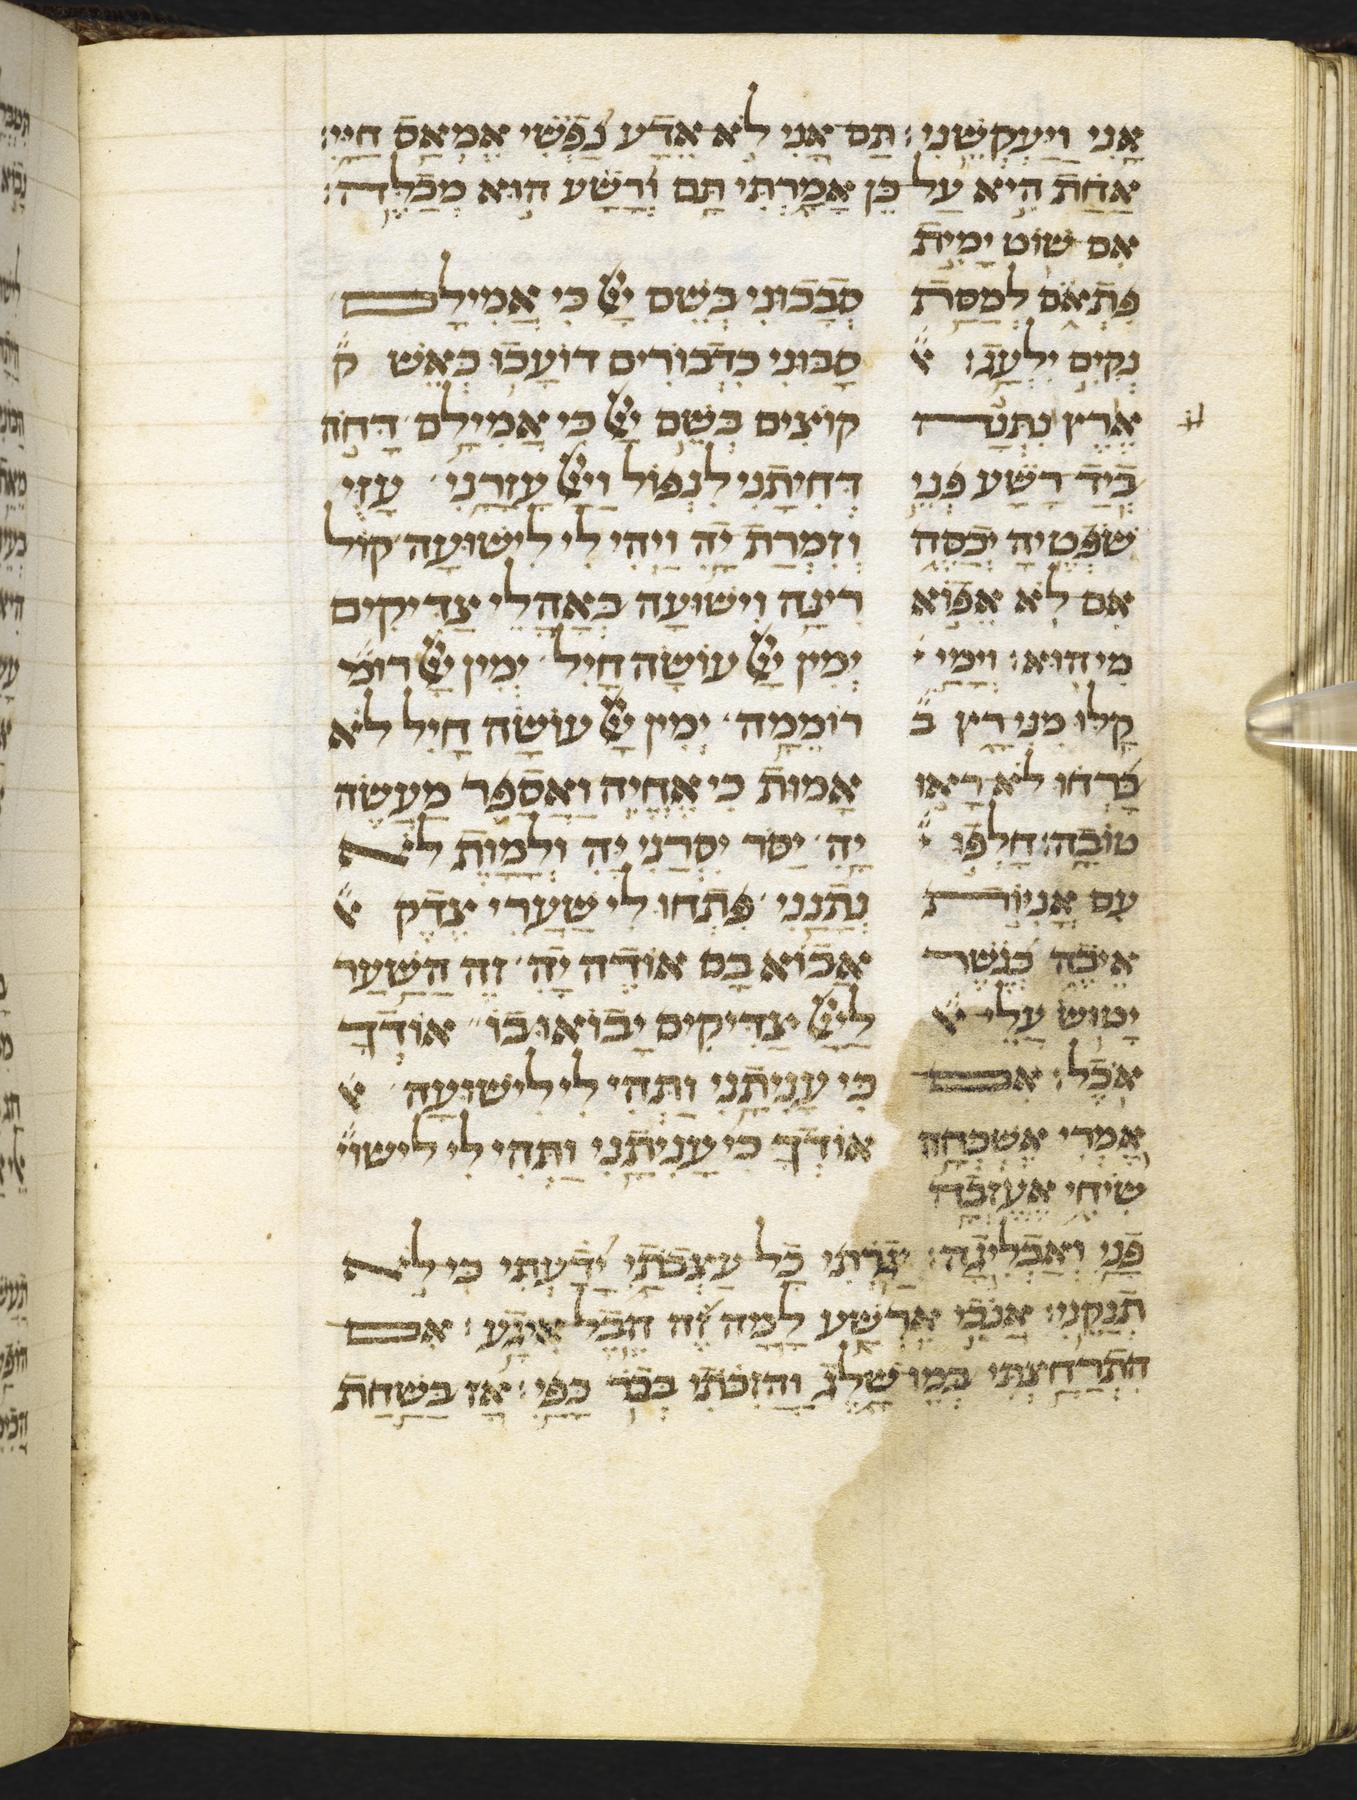 אני ויעקשני: תם אני לא אדע נפשי אמאס חיי:
אחת היא על כן אמרתי תם ורשע הוא מכלה:
אם שוט ימית
פתאם למסת
נקים ילעג: א״
ארץ נתנה
ביד רשע פני
שפטיה יכסה
אם לא אפוא
מי הוא: וימי י
קלו מני רץ ב״
ברחו לא ראו
טובה: חלפו י״
עם אניות
איבה כנשר
יטוש עלי א״
אכל: אם
אמרי אשכחה
שיחי אעזבה
סבבוני בשם יי כי אמילם
סבוני כדבורים דועכו כאש ק״
קוצים בשם יי כי אמילם דחה
דחיתני לנפול ויי עזרני עזי
וזמרת יה ויהי לי לישועה קול
רינה וישועה באהלי צדיקים
ימין יי עושה חיל ימין יי רומ״
רוממה ימין יי עושה חיל לא
אמות כי אחיה ואספר מעשה
יה יסר יסרני יה ולמות לא
נתנני פתחו לי שערי צדק א״
אבוא בם אודה יה זה השער
ליי צדיקים יבואו בו אודך
כי עניתני ותהי לי לישועה א
אודך כי עניתני ותהי לי לישוי״
פני ואבליגה: יגרתי כל עצבתי ידעתי כי לא
תנקני: אנכי ארשע למה זה הבל איגע: אם
התרחצתי במו שלג והזכתי בבר כפי: אז בשחת